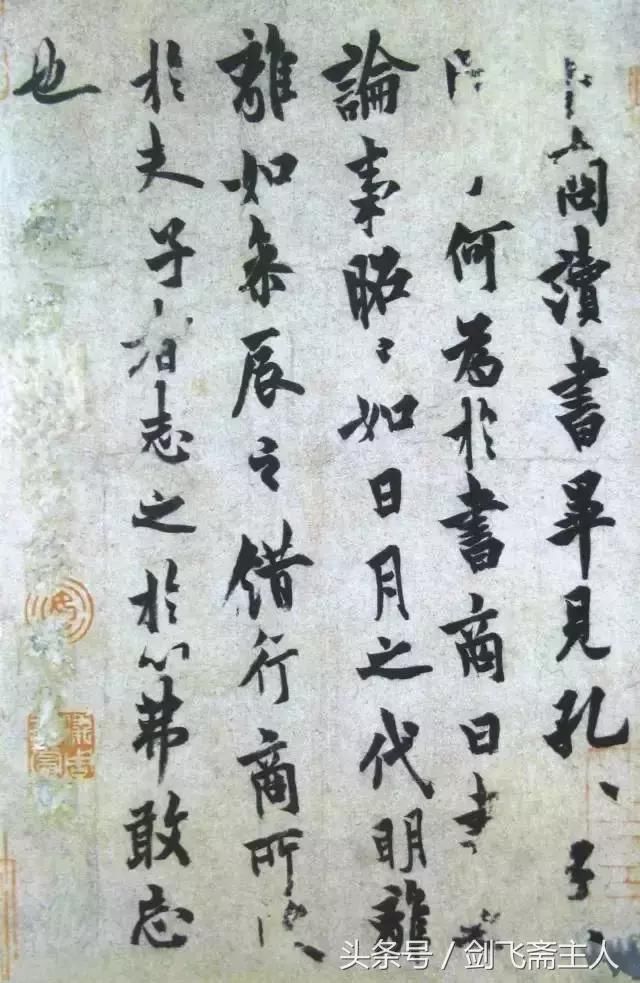 卜商讀書畢見孔〻子〻
何為於書商曰書
論事昭〻如日月之代明離
離如參辰之錯行商所
於夫子者志之於心弗敢忘
也
头条号 / 剑飞斋主人